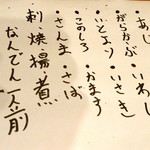 あじ ・いわし
・がらかぶ ・いさき
・いとより ・かます
・このしろ
・さんま ・さば
刺 焼 揚 煮
なんでん一人前